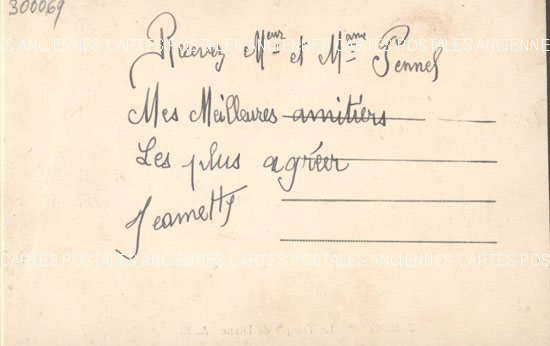 300069
Recevez Meur et Mame Pennel
ANCIENNES CARTES POSTALES ANCIENNES CARTES POSTALES ANCIENNES CARTES POSTALES
Mes Meilleures amitiérs
Les plus agréer
Jeametty
CARTES POSTALES ANCIENNES CARTES POSTALES ANCIENNES CARTES POSTALES